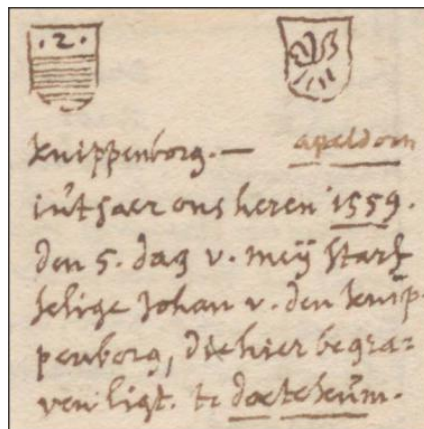 .2.
knippenborg. — apeldorn
in't jaer ons heren 1559.
den 5. dag v. meÿ starf
selige Johan v. den knip-
penborg, die hier begra=
ven ligt. te doetekum.